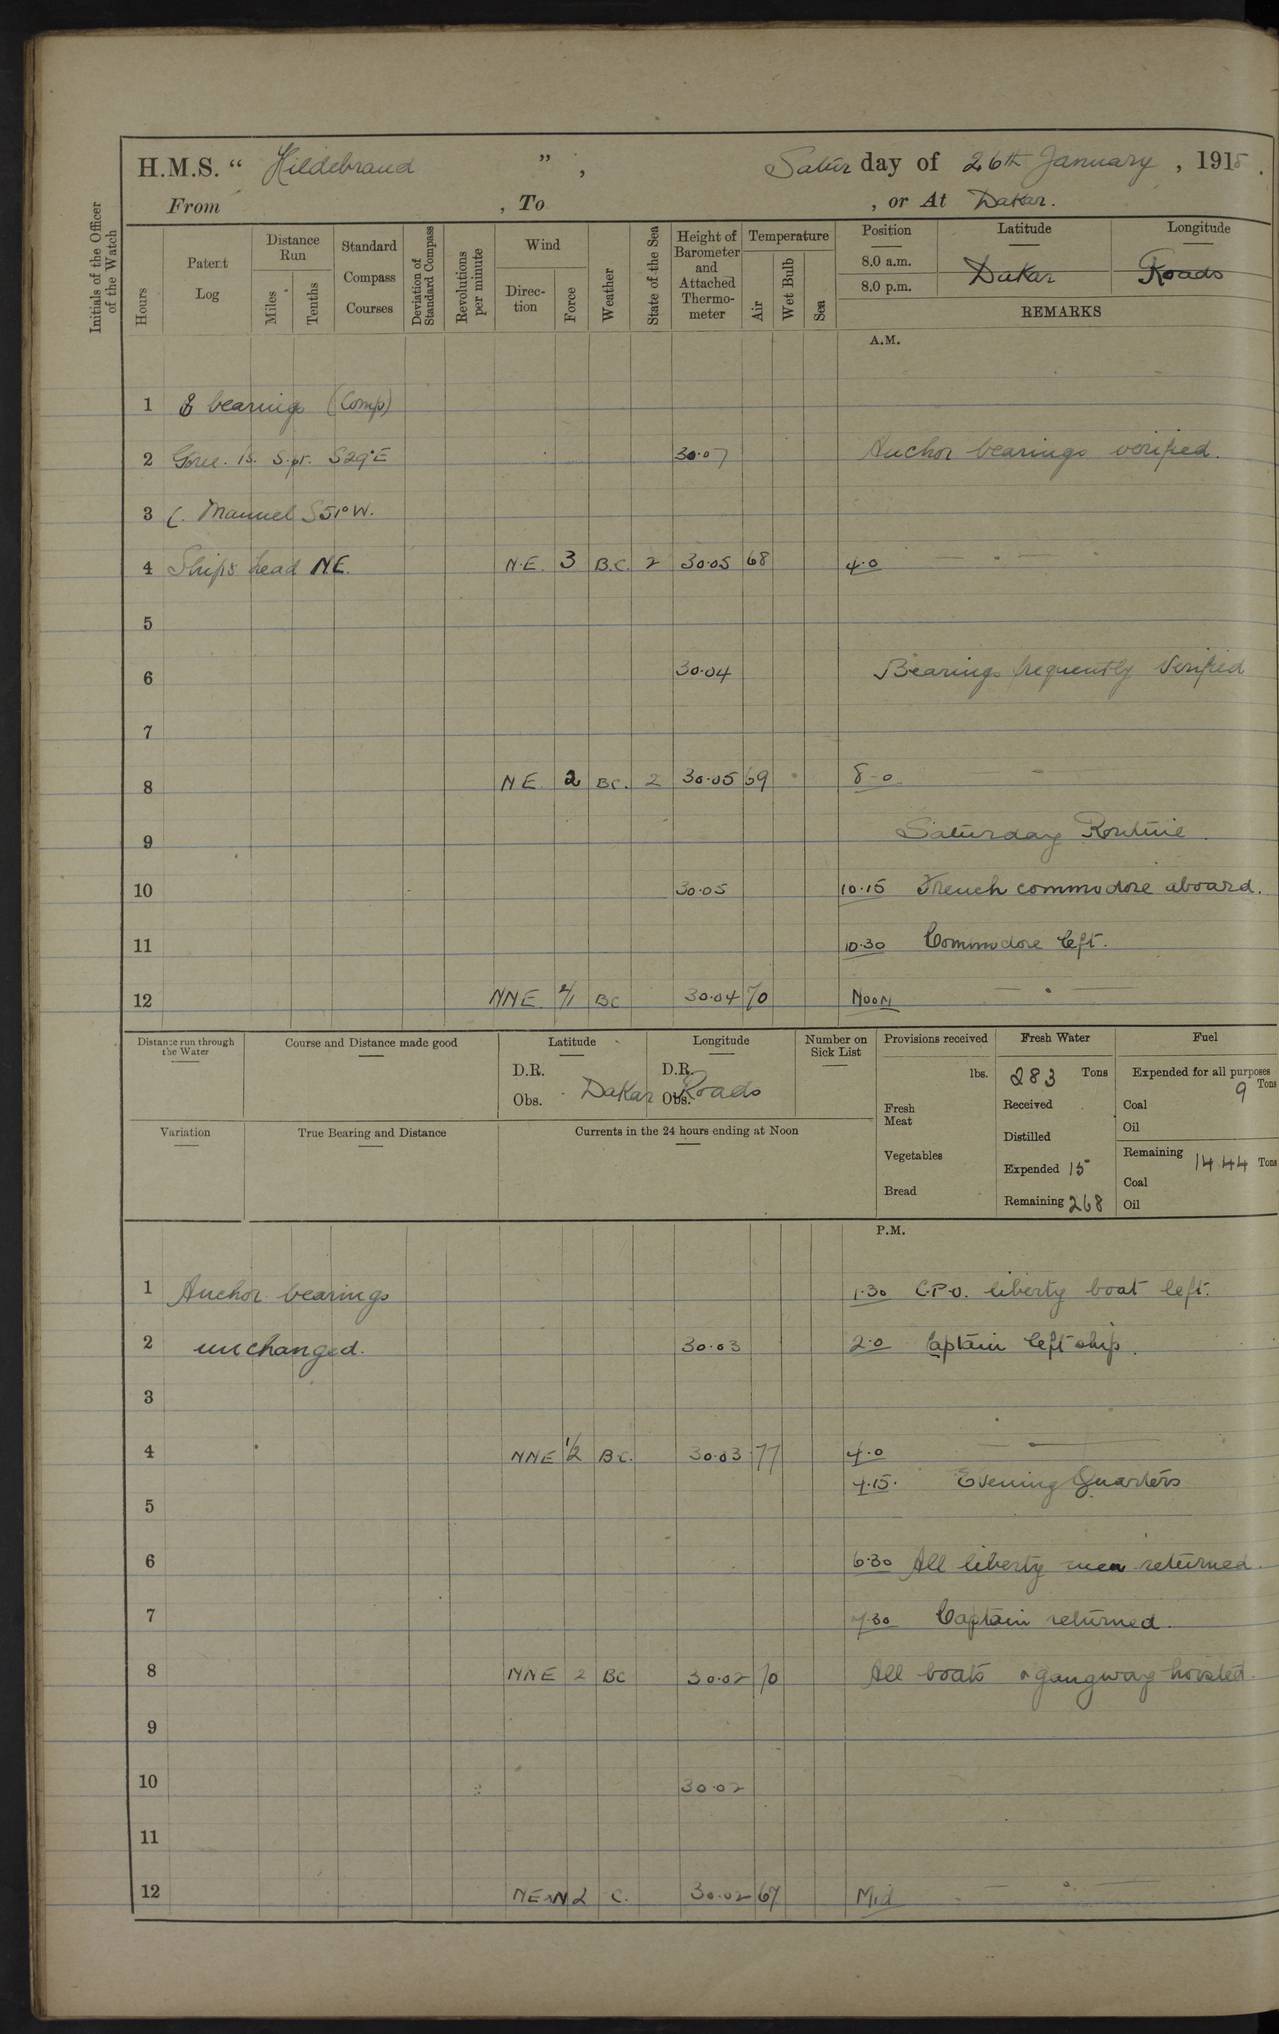 H.M.S. “ Hildebrand ” , Satur day of 26th January , 1918 .
From , To , or At Dakar.
Initials of the Officer of the Watch
Hours
Patent Log
Distance Run
Miles
Tenths
Standard Compass Courses
Deviation of Standard Compass
Revolutions per minute
Wind
Direc-tion
Force
Weather
State of the Sea
Height of Barometer and Attached Thermo-meter
Temperature
Air
Wet Bulb
Sea
Position
8.0 a.m.
8.0 p.m.
Latitude
Longitude
Dakar Roads
REMARKS
A.M.
1 bearings (Comp)
2 Goree. Is. S. pt. S29°E 30.07 Anchor bearings verified.
3 C. Manuel S51°W.
4 Ships head NE. N.E. 3 B.C. 2 30.05 68 4.0
5
6 30.04 Bearings frequently verified
7
8 NE 2 BC. 2 30.05 69 8-0
9 Saturday Routine.
10 30.05 10.15 French commodore aboard.
11 10.30 Commodore left.
12 NNE 2/1 BC 30.04 70 Noon
Distance run through the Water
Course and Distance made good
Latitude
D.R.
Obs.
Longitude
D.R.
Obs.
Dakar Roads
Number on Sick List
Provisions received
lbs.
Fresh Meat
Vegetables
Bread
Fresh Water
283 Tons
Received
Distilled
Expended 15
Remaining 268
Fuel
Expended for all purposes
9 Tons
Coal
Oil
Remaining 1444 Tons
Coal
Oil
Variation
True Bearing and Distance
Currents in the 24 hours ending at Noon
P.M.
1 Anchor bearings 1.30 C.P.O. liberty boat left.
2 unchanged. 30.03 2.0 Captain left ship.
3
4 NNE 1/2 B.C. 30.03 77 4.0
4.15. Evening Quarters
5
6 6.30 All liberty men returned.
7 7.30 Captain returned.
8 NNE 2 BC 30.02 70 All boats & gangway hoisted.
9
10 30.02
11
12 NExN 2 C. 30.02 67 Mid